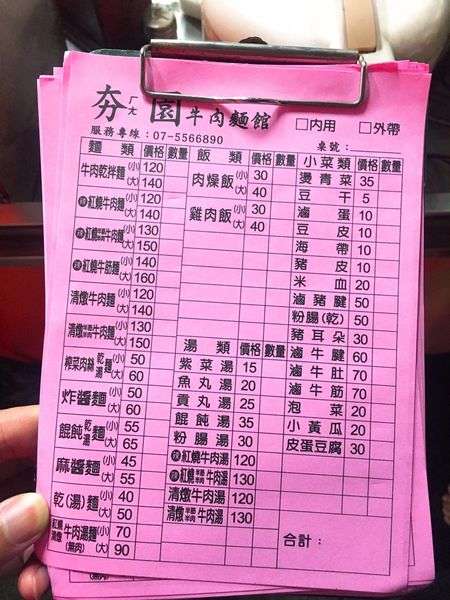 夯 ㄏㄤ 園 牛肉麵館
服務專線：07-5566890
□內用 □外帶
桌號：
麵 類 價格 數量
牛肉乾拌麵 (小) 120
(大) 140
紅燒牛肉麵 (小) 120
(大) 140
紅燒半筋半肉牛肉麵 (小) 130
(大) 150
紅燒牛筋麵 (小) 140
(大) 160
清燉牛肉麵 (小) 120
(大) 140
清燉半筋半肉牛肉麵 (小) 130
(大) 150
榨菜肉絲乾湯麵 (小) 50
(大) 60
炸醬麵 (小) 50
(大) 60
餛飩乾湯麵 (小) 55
(大) 65
麻醬麵 (小) 45
(大) 55
乾(湯)麵 (小) 40
(大) 50
紅燒清燉牛肉湯麵(無肉) (小) 70
(大) 90
飯 類 價格 數量
肉燥飯 (小) 30
(大) 40
雞肉飯 (小) 30
(大) 40
湯 類 價格 數量
紫菜湯 15
魚丸湯 20
貢丸湯 25
餛飩湯 35
粉腸湯 30
紅燒牛肉湯 120
紅燒半筋半肉牛肉湯 130
清燉牛肉湯 120
清燉半筋半肉牛肉湯 130
小菜類 價格 數量
燙青菜 35
豆干 5
滷蛋 10
豆皮 10
海帶 10
豬皮 10
米血 20
滷豬腱 50
粉腸(乾) 50
豬耳朵 30
滷牛腱 60
滷牛肚 70
滷牛筋 70
泡菜 20
小黃瓜 20
皮蛋豆腐 30
合計：